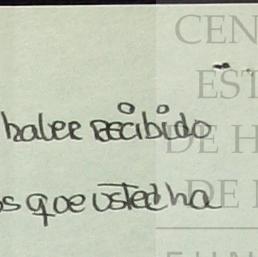 CEN
EST
haber recibido
DE H
os que usted ha
DE E